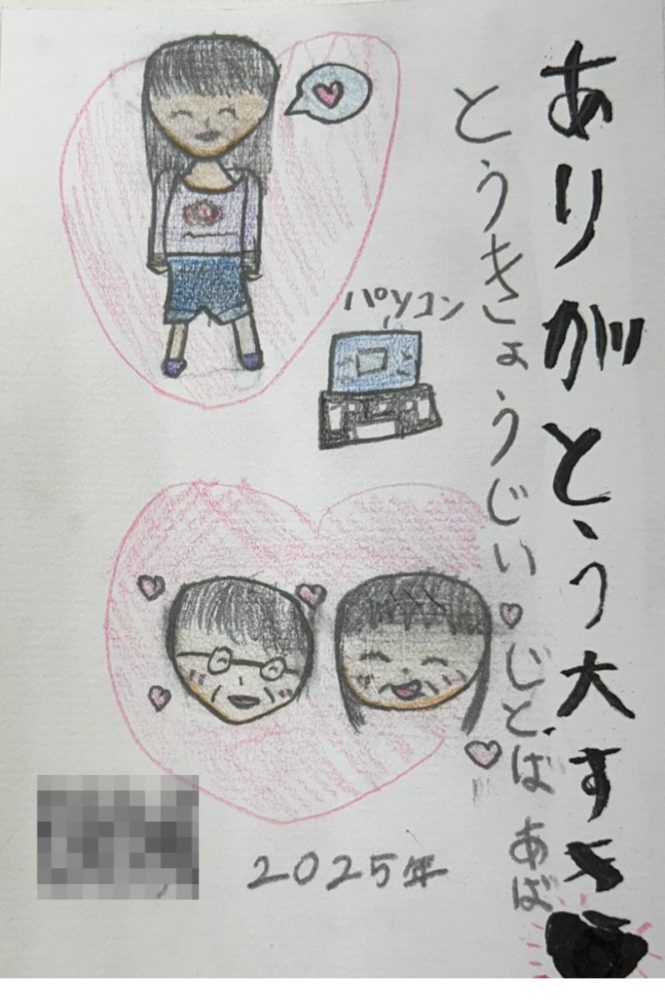 ありがとう大すき
とうきょうじい♡じとばあば
パソコン
2025年